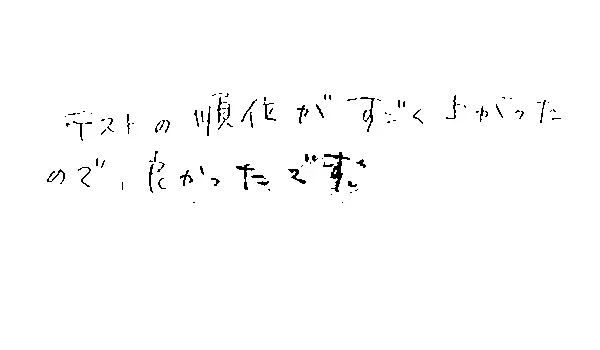 テストの順位がすごく上がった
ので、良かったです。